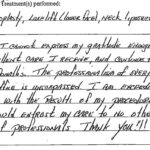 Treatment(s) performed:
oplasty, Lunchlift (lower face), neck liposuc
I cannot express my gratitude enough
ellent care I receive, and continue t
owell's. The professionalism of every
ffice is unsurpassed. I am extremely
with the results of my procedures
would entrust my care to no other
of professionals. Thank you!!!